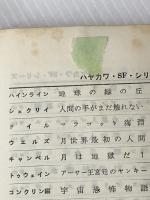 ハヤカワ・SF・シリ
ハインライン 地球の緑の丘
シェクリイ 人間の手がまだ触れない
ドイル マラコット海淵
ウエルズ 月世界最初の人間
キャンベル 月は地獄だ!
トウェイン アーサー王宮廷のヤンキー
コンクリン編 宇宙恐怖物語